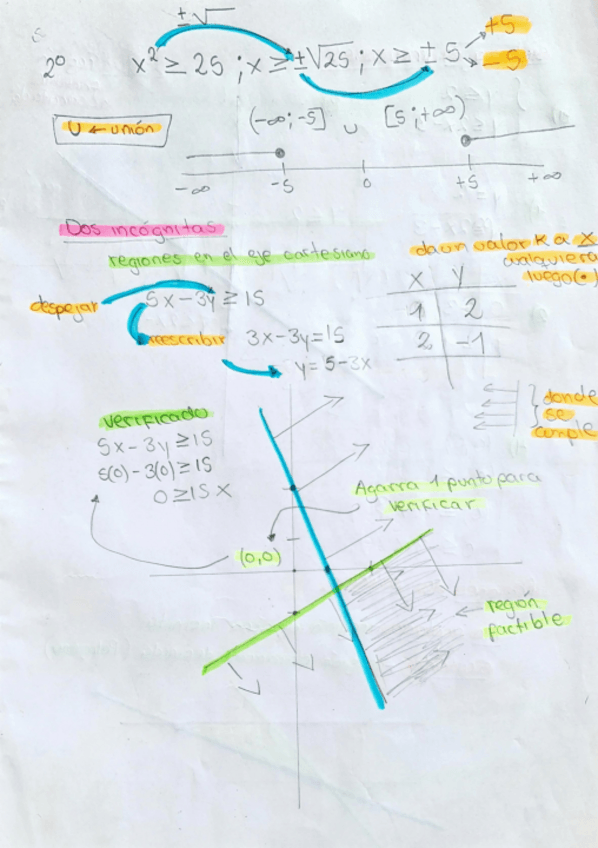 ± √
2º x² ≥ 25 ; x ≥ ±√25 ; x ≥ ± 5
+5
-5
U ← unión
(-∞;-5] ∪ [5;+∞)
-∞ -5 0 +5 +∞
Dos incógnitas
regiones en el eje cartesiano
da un valor K a X
cualquiera
luego(•)
despejar
5x-3y ≥ 15
reescribir 3x-3y=15
y= 5-3x
X Y
1 2
2 -1
donde
se
cumple
verificado
5x-3y ≥ 15
5(0)-3(0) ≥ 15
0 ≥ 15 X
Agarra 1 punto para
verificar
(0,0)
región
factible